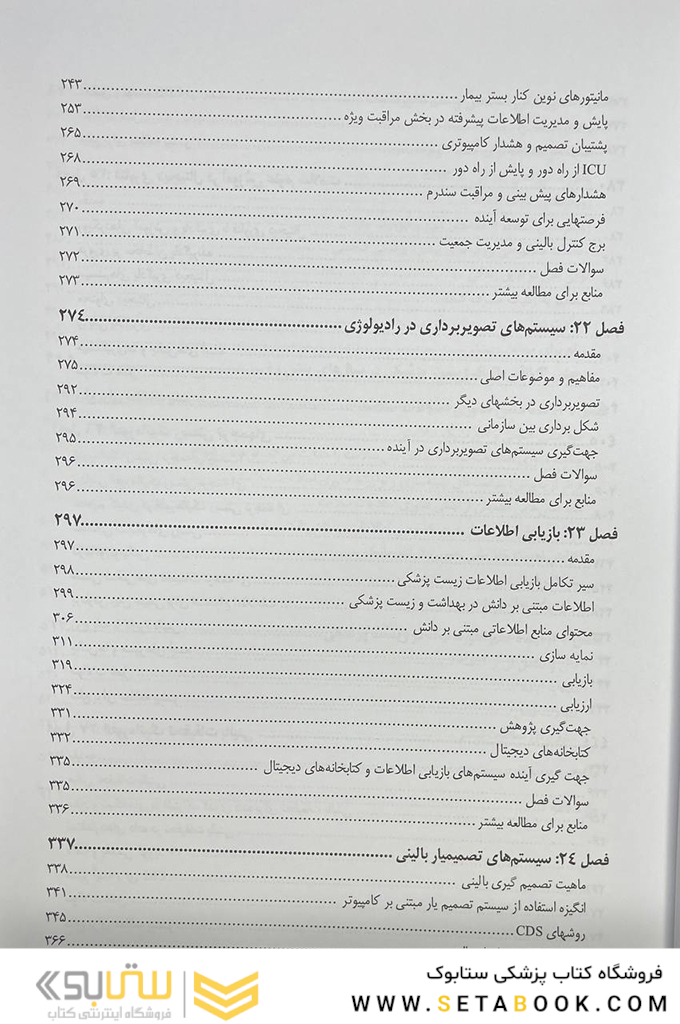 مانیتورهای نوین کنار بستر بیمار ........ ۲۴۳
پایش و مدیریت اطلاعات پیشرفته در بخش مراقبت ویژه ........ ۲۵۳
پشتیبان تصمیم و هشدار کامپیوتری ........ ۲۶۵
ICU از راه دور و پایش از راه دور ........ ۲۶۸
هشدارهای پیش بینی و مراقبت سندرم ........ ۲۶۹
فرصتهایی برای توسعه آینده ........ ۲۷۰
برج کنترل بالینی و مدیریت جمعیت ........ ۲۷۱
سوالات فصل ........ ۲۷۲
منابع برای مطالعه بیشتر ........ ۲۷۳
فصل ۲۲: سیستم‌های تصویربرداری در رادیولوژی ........ ۲۷۴
مقدمه ........ ۲۷۴
مفاهیم و موضوعات اصلی ........ ۲۷۵
تصویربرداری در بخشهای دیگر ........ ۲۹۲
شکل برداری بین سازمانی ........ ۲۹۴
جهت‌گیری سیستم‌های تصویربرداری در آینده ........ ۲۹۵
سوالات فصل ........ ۲۹۶
منابع برای مطالعه بیشتر ........ ۲۹۶
فصل ۲۳: بازیابی اطلاعات ........ ۲۹۷
مقدمه ........ ۲۹۷
سیر تکامل بازیابی اطلاعات زیست پزشکی ........ ۲۹۸
اطلاعات مبتنی بر دانش در بهداشت و زیست پزشکی ........ ۲۹۹
محتوای منابع اطلاعاتی مبتنی بر دانش ........ ۳۰۶
نمایه سازی ........ ۳۱۱
بازیابی ........ ۳۱۹
ارزیابی ........ ۳۲۴
جهت‌گیری پژوهش ........ ۳۳۱
کتابخانه‌های دیجیتال ........ ۳۳۲
جهت گیری آینده سیستم‌های بازیابی اطلاعات و کتابخانه‌های دیجیتال ........ ۳۳۵
سوالات فصل ........ ۳۳۵
منابع برای مطالعه بیشتر ........ ۳۳۶
فصل ۲۴: سیستم‌های تصمیمیار بالینی ........ ۳۳۷
ماهیت تصمیم گیری بالینی ........ ۳۳۸
انگیزه استفاده از سیستم تصمیم یار مبتنی بر کامپیوتر ........ ۳۴۱
روشهای CDS ........ ۳۴۵
۳۶۶
فروشگاه کتاب پزشکی ستابوک
WWW.SETABOOK.COM
ستابوک
فروشگاه اینترنتی کتاب